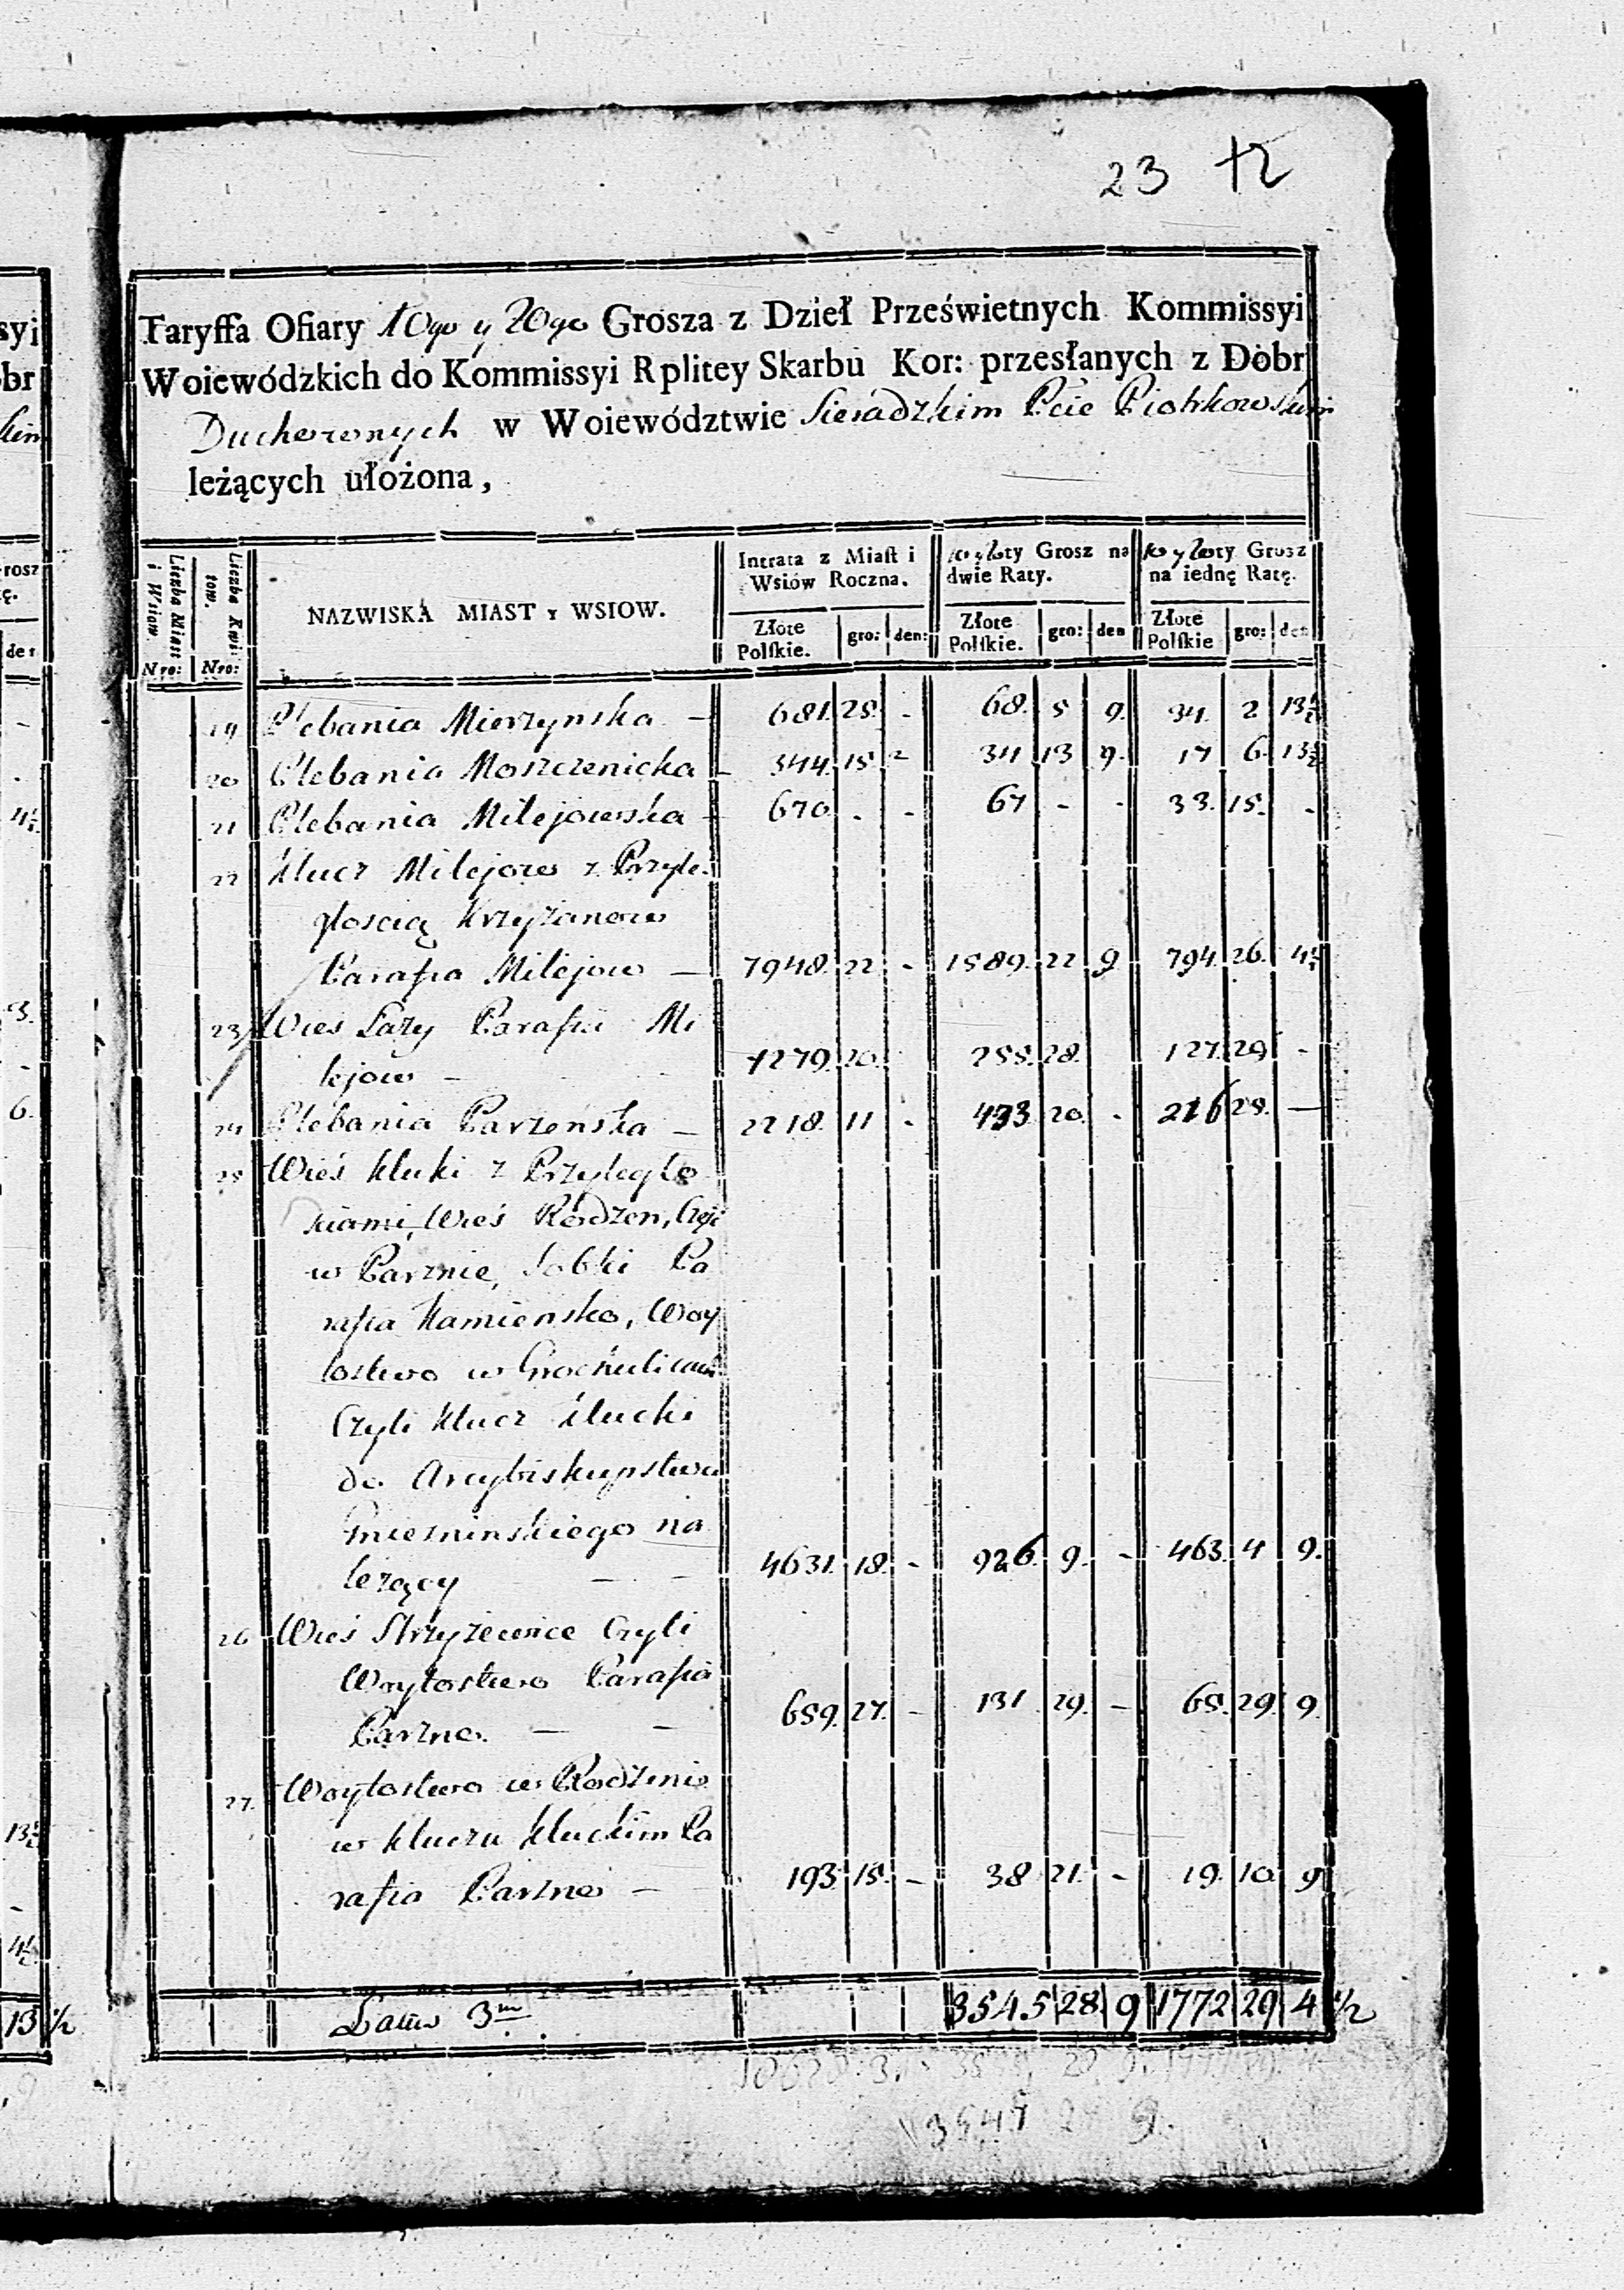 23 12
Taryffa Ofiary 10go y 20go Grosza z Dzieł Prześwietnych Kommissyi
Woiewódzkich do Kommissyi Rplitey Skarbu Kor: przesłanych z Dobr
Duchownych w Woiewództwie Sieradzkim Pcie Piotrkowskim
leżących ułożona,
Liczba Miast i Wsiow Nro:
Liczba Kwitow. Nro:
NAZWISKA MIAST y WSIOW.
Intrata z Miast i Wsiów Roczna.
Złote Polskie. gro: den:
10 y 20ty Grosz na dwie Raty.
Złote Polskie. gro: den
10 y 20ty Grosz na iednę Ratę.
Złote Polskie gro: den
19 Plebania Mierzynska — 681. 25. - 68. 5 9. 34. 2 13½
20 Plebania Moszczenicka — 344. 15 - 34 13 9. 17 6. 13½
21 Plebania Milejowska - 670. - - 67 - - 33. 15. -
22 Klucz Milejow z Przyle-
głoscią Krzyżanow
Parafia Milejow — 7948. 22 - 1589. 22 9 794. 26. 4½
23 Wies Łazy Parafia Mi
lejow — 1279. 20. 255. 28. 127. 29 -
24 Plebania Parzeńska — 2218. 11 - 433 20. - 216 25. —
25 Wieś Kluki z Przyległo
sciami, Wieś Rodzen, Częśc
w Parznie, Sobki Pa
rafia Kamiensko, Woy
tostwo w Grocholicach
Czyli Klucz Klucki
do Arcybiskupstwa
Gniezninskiego na
leżący — — 4631. 18. - 926. 9. - 463. 4 9.
26 Wieś Strzyżewice Czyli
Woytostwo Parafia
Parzno. — — 659. 27. - 131 29. - 65. 29. 9.
27. Woytostwo w Rodzeniu
w Kluczu Kluckim Pa
rafia Parzno — 193. 15. - 38 21. - 19. 10. 9
Latus 3m 3545 28 9 1772 29 4 ½
3545 2 9.